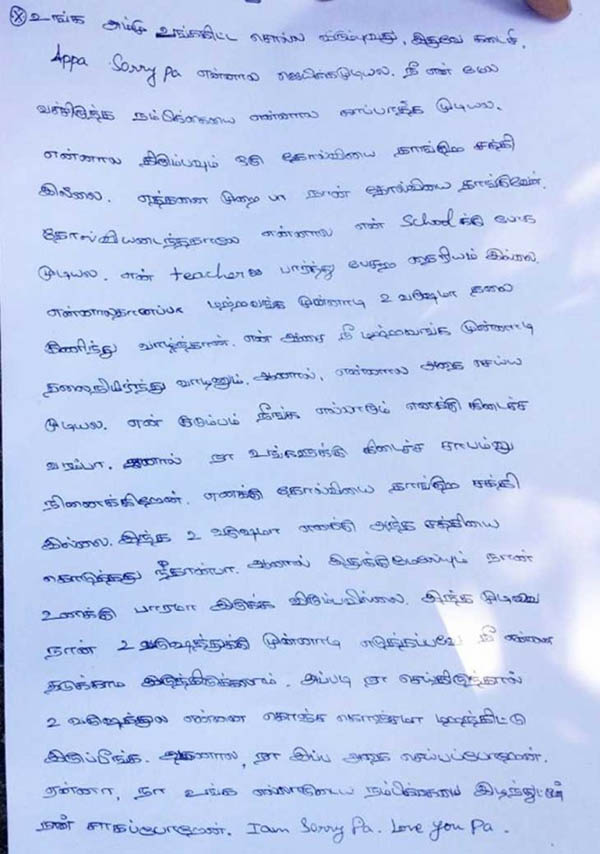 உங்க அம்மு உங்ககிட்ட சொல்ல விரும்புவது, இதுவே கடைசி.
Appa Sorry pa என்னால ஜெயிக்கமுடியல. நீ என் மேல
வச்சிருந்த நம்பிக்கையை என்னால காப்பாத்த முடியல.
என்னால திரும்பவும் ஒரு தோல்வியை தாங்கும் சக்தி
இல்லை. எத்தனை முறை பா நான் தோல்வியை தாங்குவேன்.
தோல்வியடைந்ததால என்னால என் School க்கு போக
முடியல. என் teacher ஐ பார்த்து பேசும் தைரியம் இல்லை.
என்னாலதானப்பா மற்றவங்க முன்னாடி 2 வருஷமா தலை
குனிந்து வாழ்ந்தாய். என் ஆசை நீ மற்றவங்க முன்னாடி
தலைநிமிர்ந்து வாழனும். ஆனால், என்னால அதை செய்ய
முடியல. என் குடும்பம் நீங்க எல்லாரும் எனக்கு கிடைச்ச
வரம்பா. ஆனால் நா உங்களுக்கு கிடைச்ச சாபம்னு
நினைக்கிறேன். எனக்கு தோல்வியை தாங்கும் சக்தி
இல்லை. இந்த 2 வருஷமா எனக்கு அந்த சக்தியை
கொடுத்தது நீதான்பா. ஆனால் இதுக்குமேலயும் நான்
உனக்கு பாரமா இருக்க விரும்பவில்லை. இந்த முடிவை
நான் 2 வருஷத்துக்கு முன்னாடி எடுத்தப்பவே நீ என்னை
தடுக்காம இருந்திருக்கலாம். அப்படி நா செய்திருந்தால்
2 வருஷத்துல என்னை கொஞ்ச கொஞ்சமா மறந்திட்டு
இருப்பீங்க. அதனால, நா இப்ப அதை செய்யப்போறேன்.
ஏன்னா, நா உங்க எல்லாருடைய நம்பிக்கையை இழந்துட்டேன்
நான் சாகப்போறேன். I am Sorry Pa. Love you Pa.